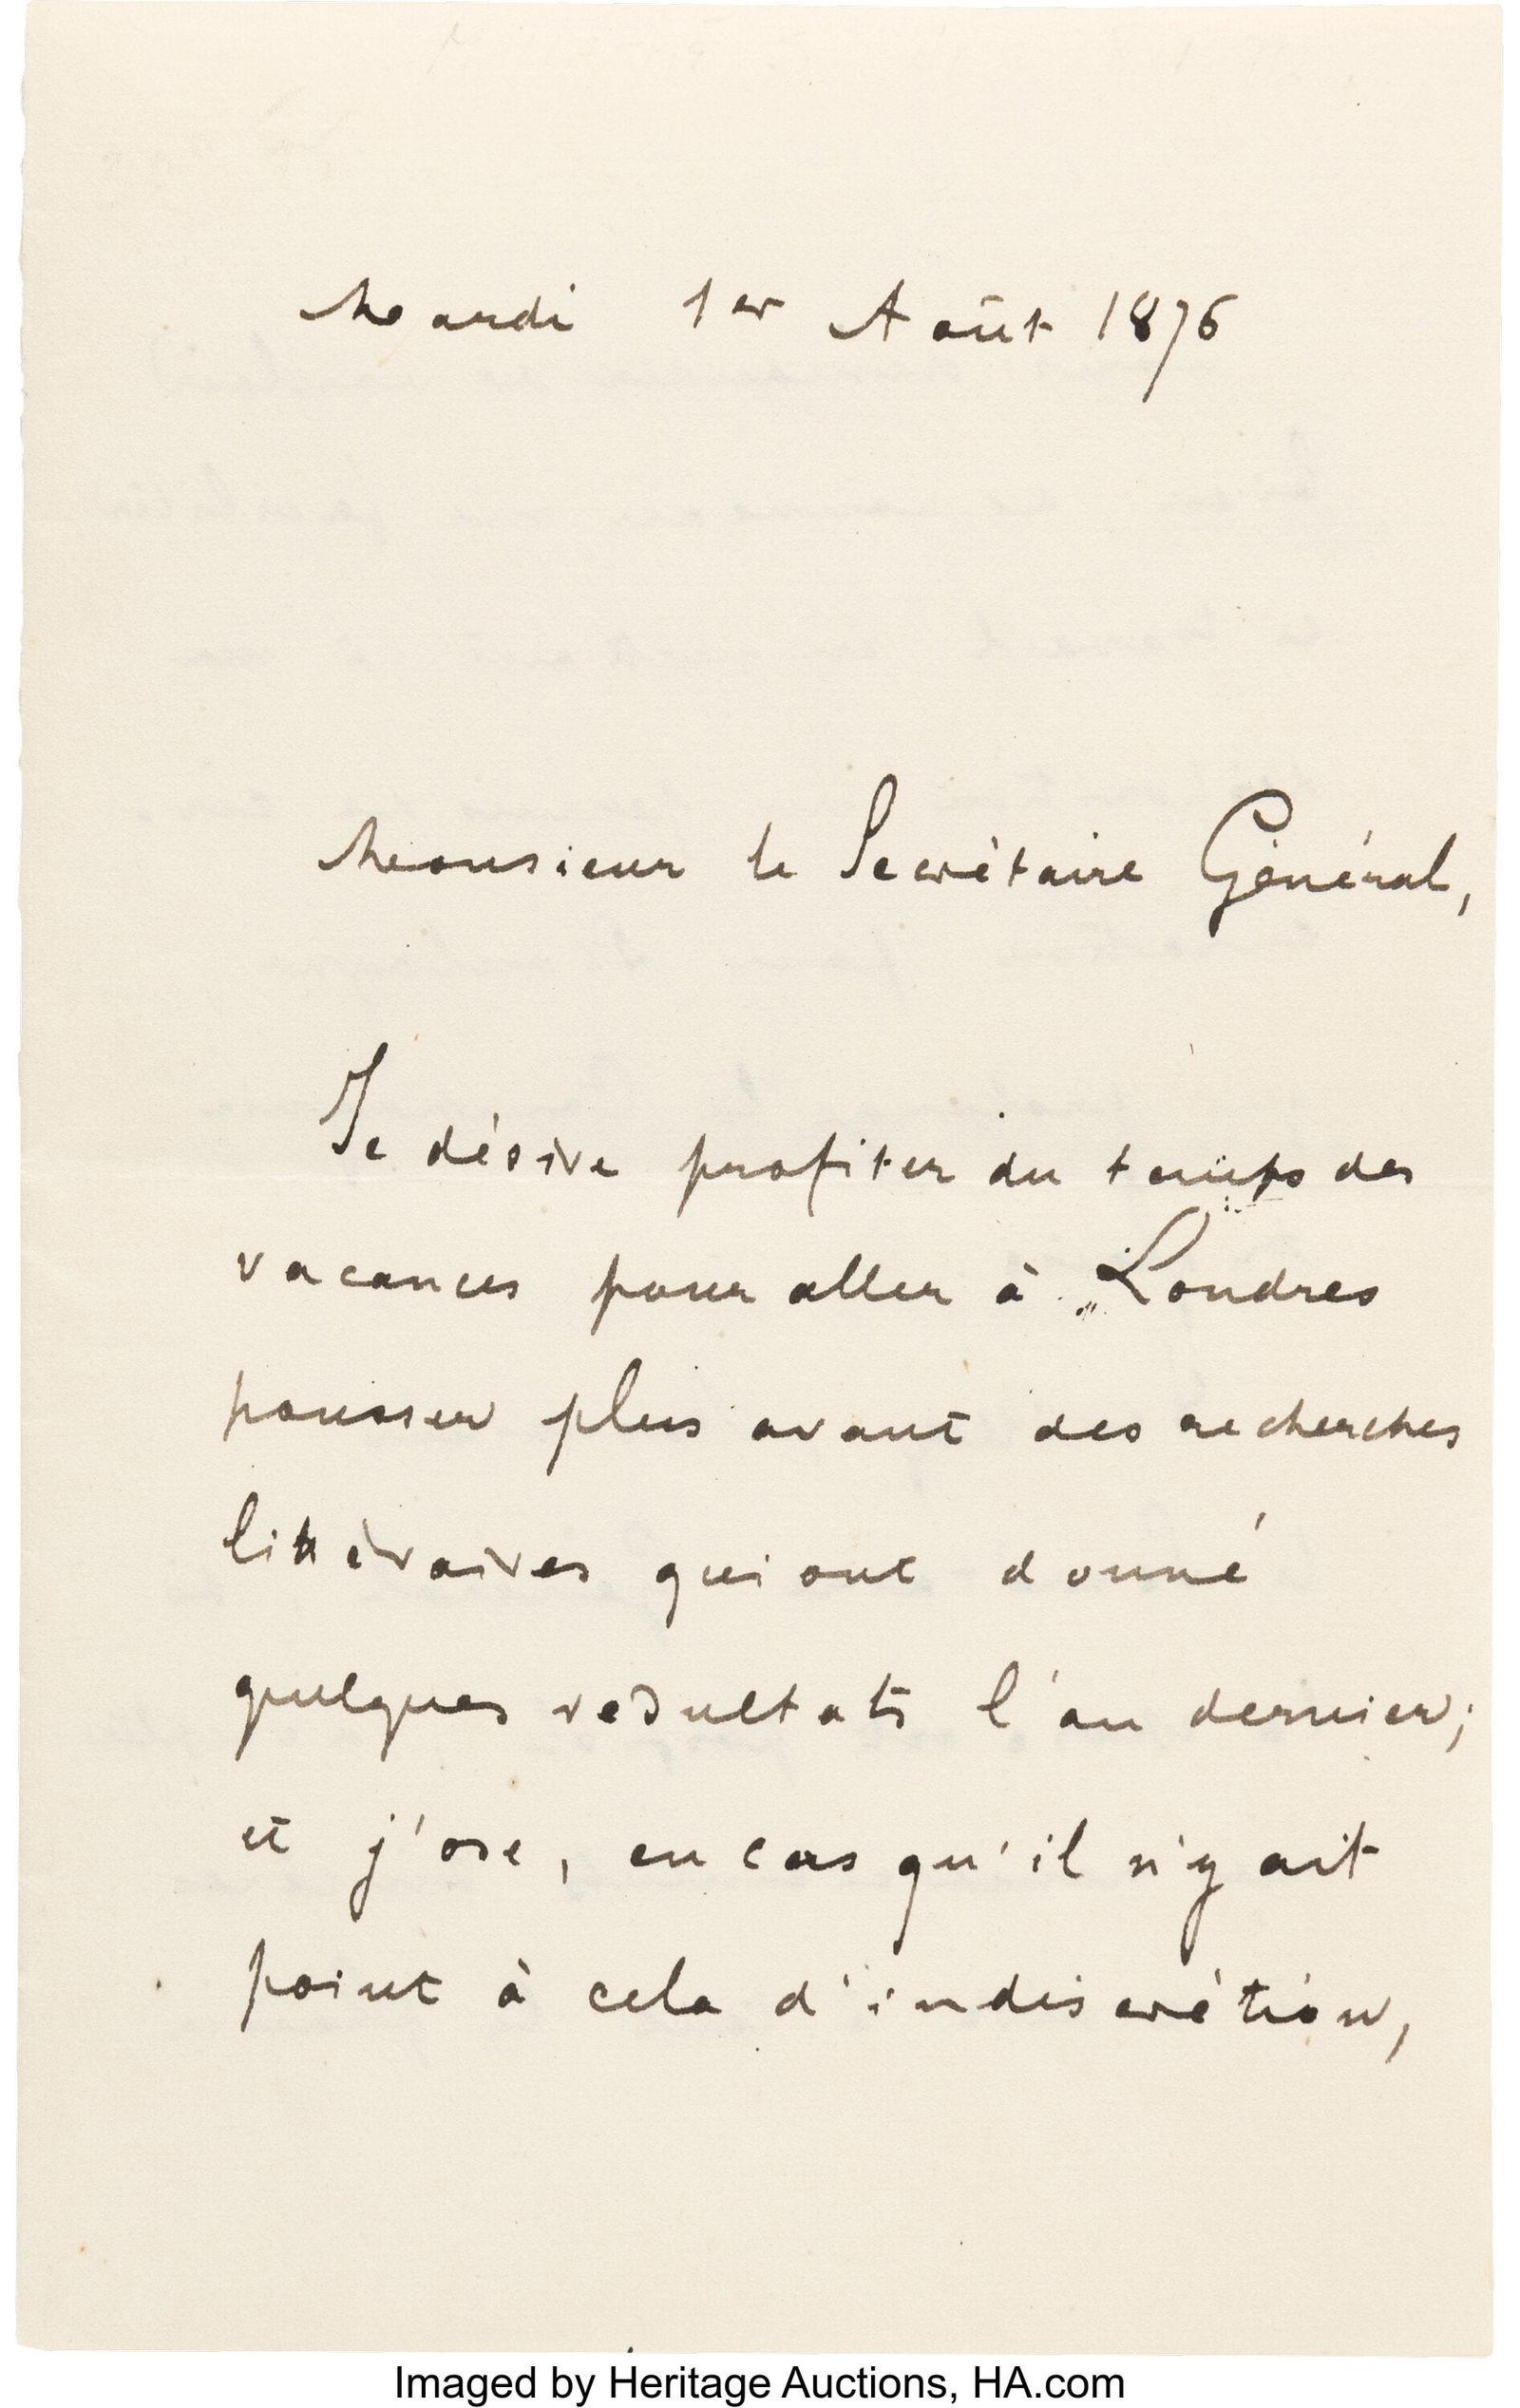 Mardi 1er Août 1876
Monsieur le Secrétaire Général,
Je désire profiter du temps des
vacances pour aller à Londres
pousser plus avant des recherches
littéraires qui ont donné
quelques résultats l'an dernier;
et j'ose, en cas qu'il n'y ait
point à cela d'indiscrétion,
Imaged by Heritage Auctions, HA.com